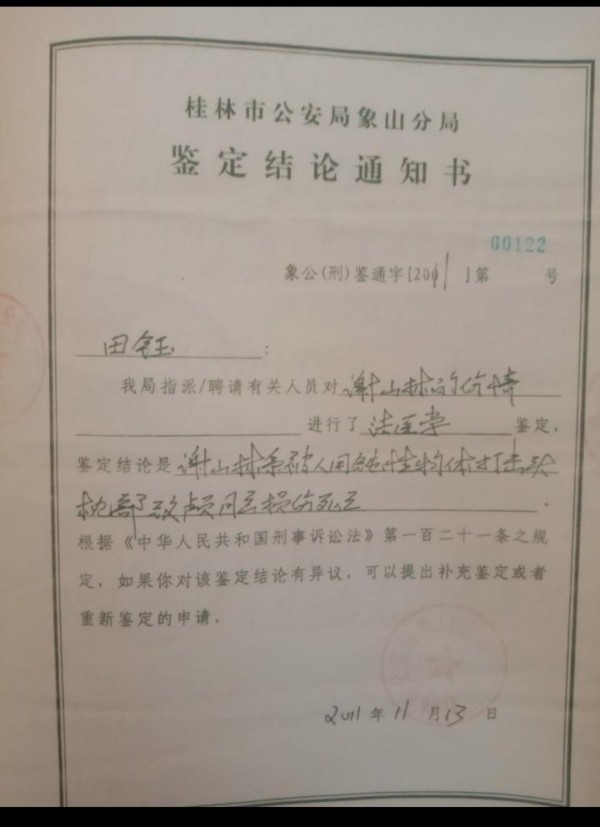 桂林市公安局象山分局
鉴定结论通知书
00122
象公(刑)鉴通字[2011]第 号
田钰:
我局指派/聘请有关人员对谢山林的伤情
进行了法医学鉴定,
鉴定结论是谢山林系被人用钝性物体打击头
枕部致颅脑损伤死亡。
根据《中华人民共和国刑事诉讼法》第一百二十一条之规
定,如果你对该鉴定结论有异议,可以提出补充鉴定或者
重新鉴定的申请。
2011年11月13日